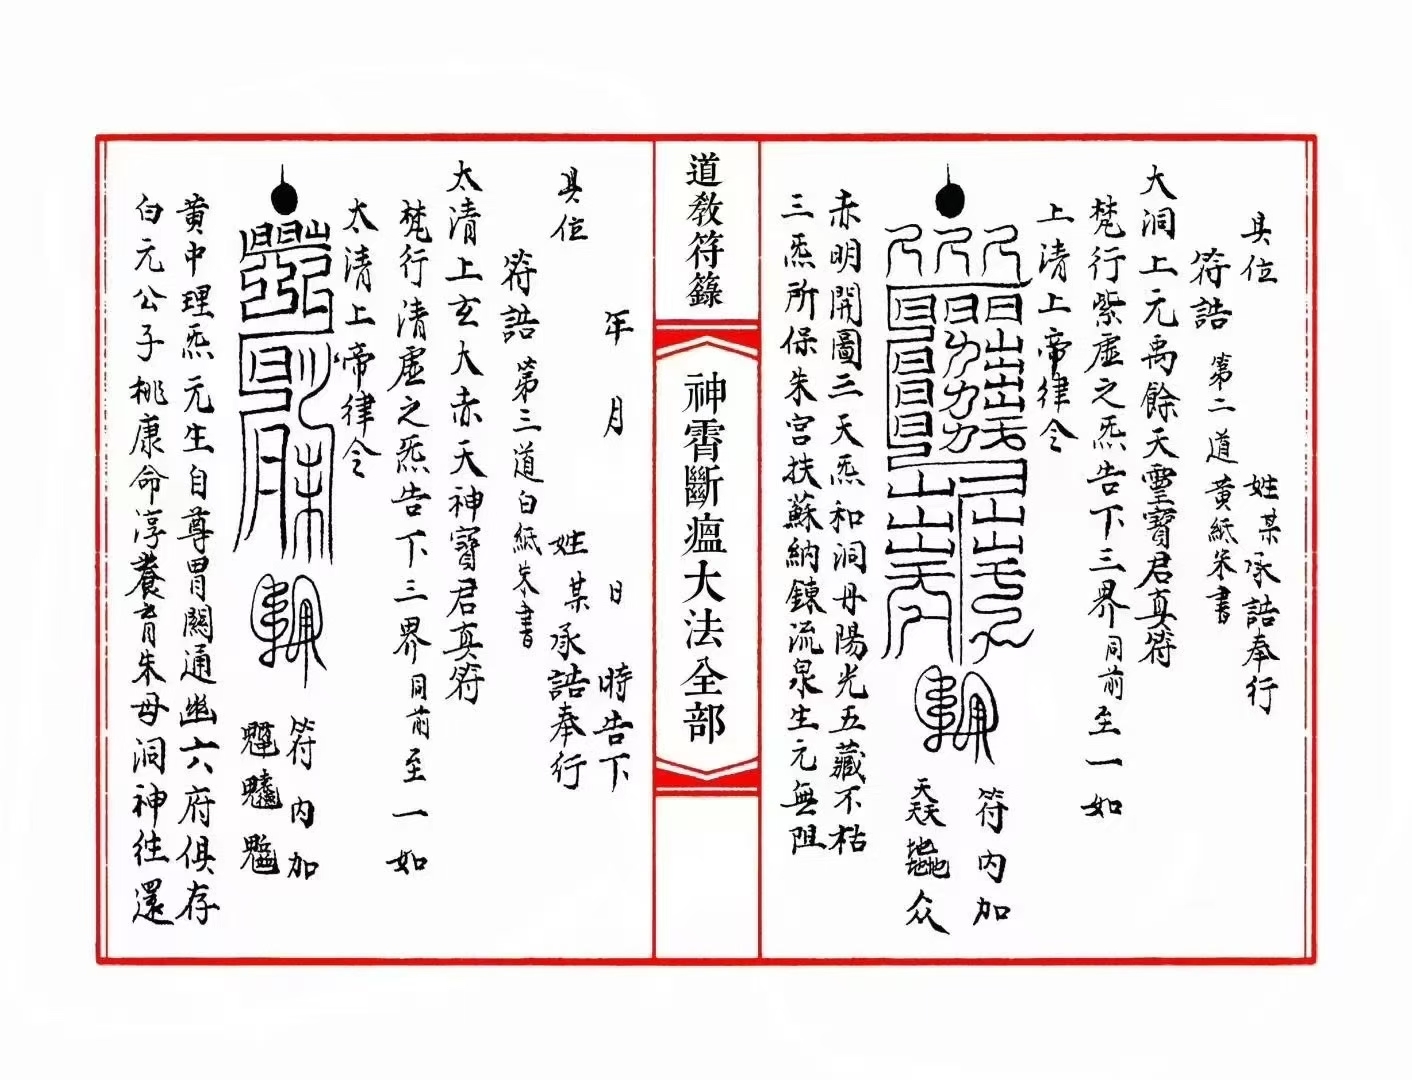 具位　姓某承誥奉行
符誥　第二道　黃紙朱書
大洞上元禹餘天靈寶君真符
梵行紫虛之炁告下三界同前至一如
上清上帝律令
符內加
众
赤明開圖三天炁和洞丹陽光五藏不枯
三炁所保朱宮扶蘇納鍊流泉生元無阻
道教符籙
神霄斷瘟大法全部
年　月　日　時告下
具位　姓某承誥奉行
符誥　第三道　白紙朱書
太清上玄大赤天神寶君真符
梵行清虛之炁告下三界同前至一如
太清上帝律令
符內加
黃中理炁元生自尊胃闕通幽六府俱存
白元公子桃康命淳養育朱母洞神往還